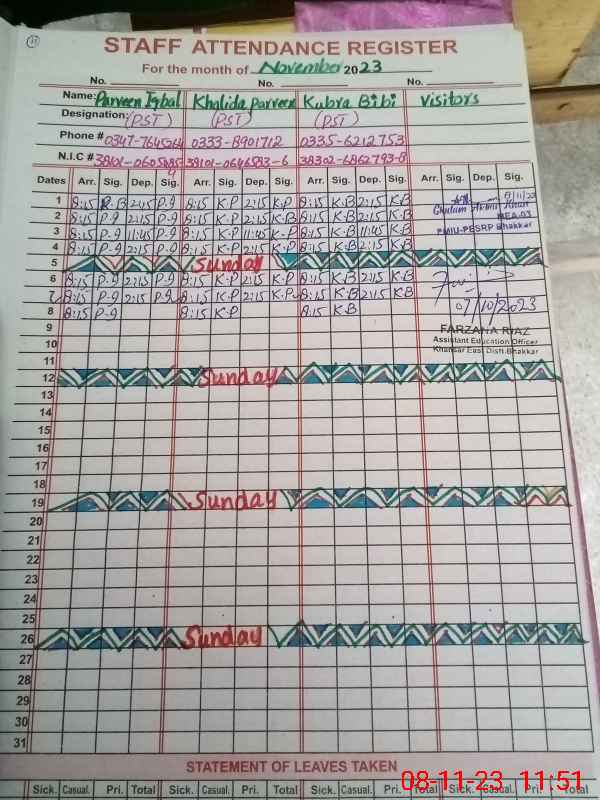 STAFF ATTENDANCE REGISTER
For the month of November 2023
No. No. No.
Name: Parveen Iqbal Khalida Parveen Kubra Bibi Visitors
Designation: (PST) (PST) (PST)
Phone # 0333-8901712 0335-6212753
N.I.C # 38101-0646583-6 38302-6862793-8
Dates Arr. Sig. Dep. Sig. Arr. Sig. Dep. Sig. Arr. Sig. Dep. Sig. Arr. Sig. Dep. Sig.
1 8:15 P.9 2:15 P.9 8:15 K.P 2:15 K.P 8:15 K.B 2:15 K.B
2 8:15 P.9 2:15 P.9 8:15 K.P 2:15 K.P 8:15 K.B 2:15 K.B
3 8:15 P.9 11:45 P.9 8:15 K.P 11:45 K.P 8:15 K.B 11:45 K.B PMIU-PESRP Bhakkar
4 8:15 P.9 2:15 P.9 8:15 K.P 2:15 K.P 8:15 K.B 2:15 K.B
5 Sunday
6 8:15 P.9 2:15 P.9 8:15 K.P 2:15 K.P 8:15 K.B 2:15 K.B
7 8:15 P.9 2:15 P.9 8:15 K.P 2:15 K.P 8:15 K.B 2:15 K.B
8 8:15 P.9 8:15 K.P 8:15 K.B 07/10/2023
9 FARZANA RIAZ
10 Assistant Education Officer
Khansar East Distt.Bhakkar
11
12 Sunday
13
14
15
16
17
18
19 Sunday
20
21
22
23
24
25
26 Sunday
27
28
29
30
31
STATEMENT OF LEAVES TAKEN
Sick. Casual. Pri. Total Sick. Casual. Pri. Total Sick. Casual. Pri. Total Sick. Casual. Pri. Total
08-11-23 11:51